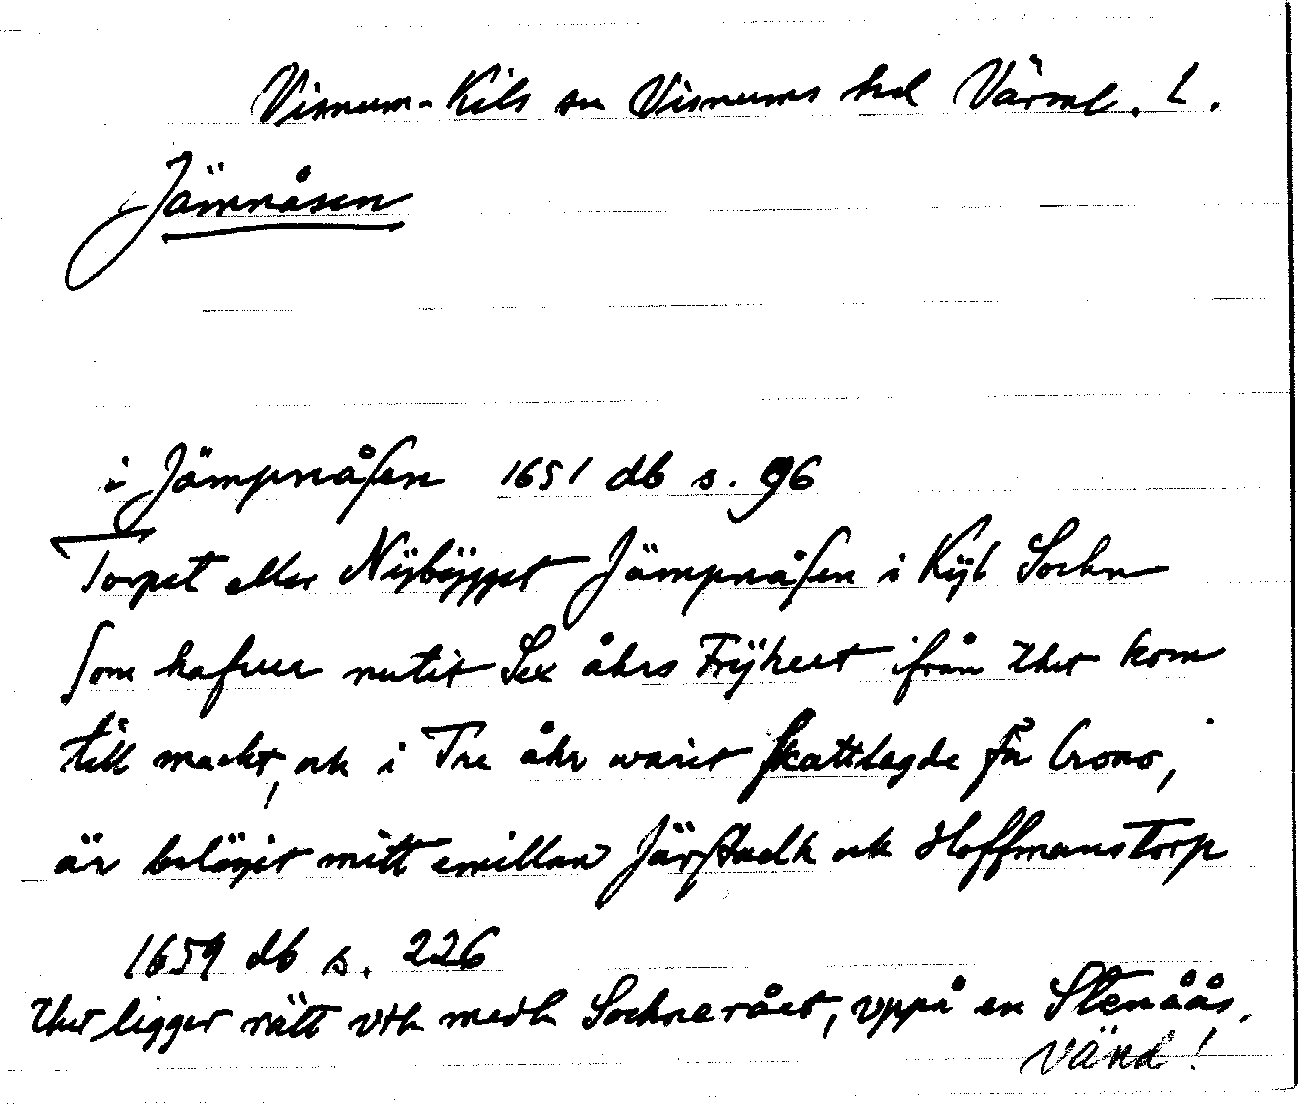 Visnum-Kils sn Visnums hd Värml. l.
Jämnåsen
i Jämpnåsen 1651 db s. 96
Torpet eller Nÿbÿgget Jämpnåsen i Kÿl Sochn
som hafuer nutit Sex åhrs Frÿheet ifrån thet kom
till macht, och i Tre åhr warit skattlagde för Crono,
är belägit mitt emillan Järstadh och Hoffmanstorp
1659 db s. 226
thet ligger rätt vth medh Sochnerået, vppå en Stenåås,
Vänd!